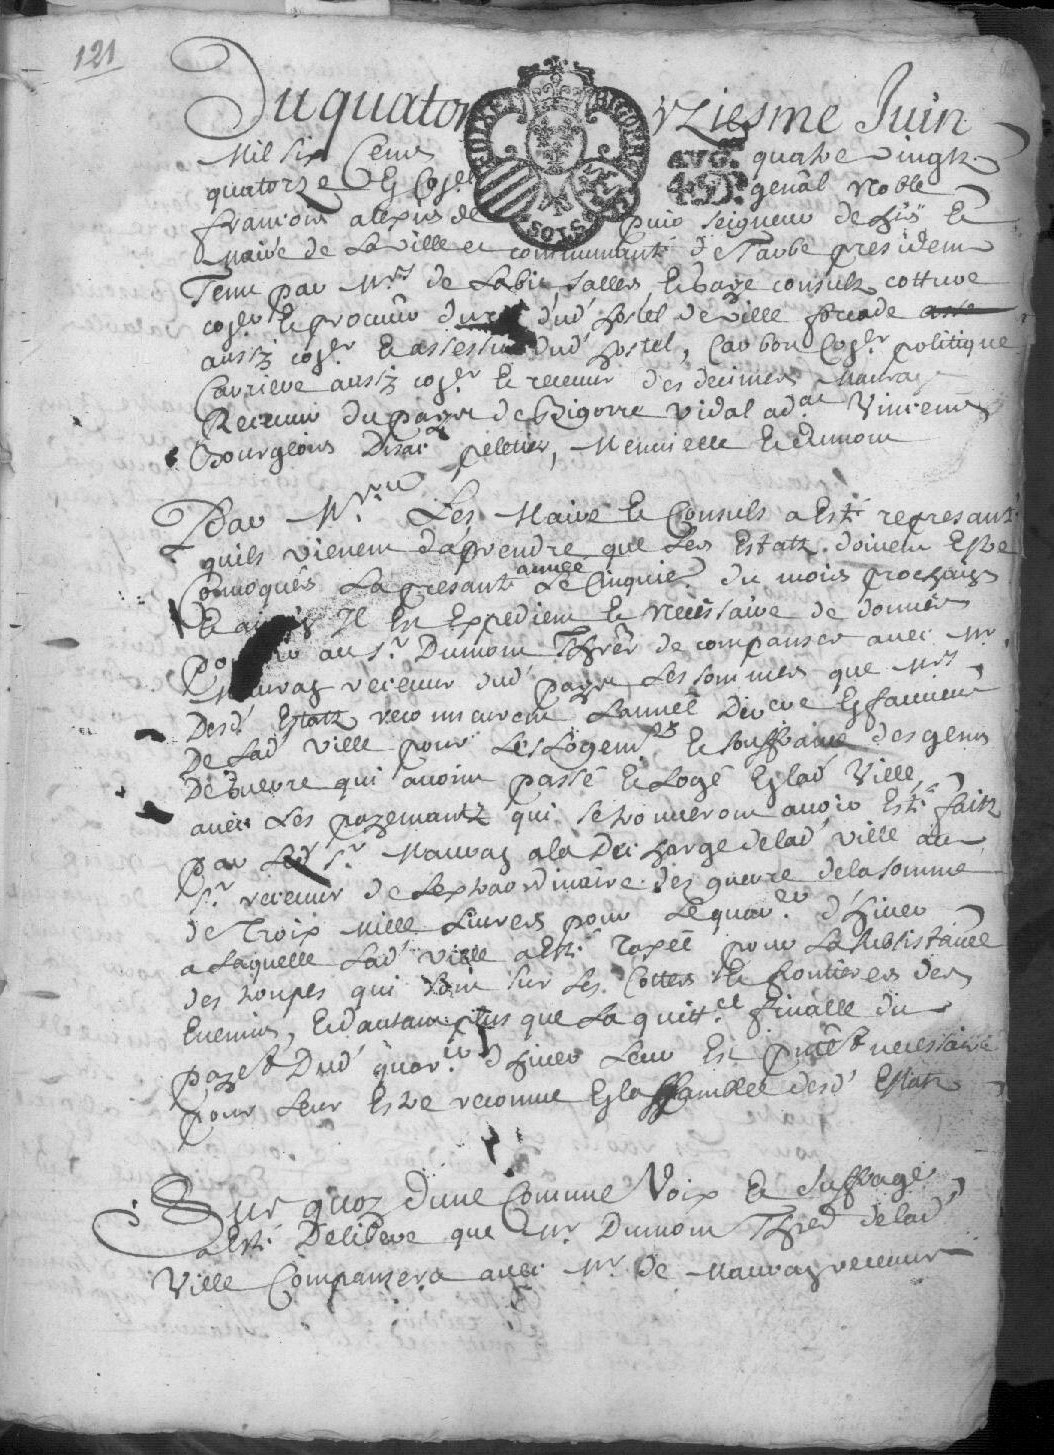 121
Du quator rziesme Juin
Mil six Cens AVG. quatre vingtz
quatorze En Con.er 4.D. genãl Noble
francois alexis de puio seigneur de hiis Et
Maire de La ville et communauté de Tarbe president
Tenu par Mrs de Labie, Salles, Et consulz cotture
con.er Et procureur dud' hostel de ville forcade
aussy con.er Et assesseur dud' hostel, Carbon Con.er politique
Carriere aussy con.er Et receveur des decimes Mauvay
Receveur du pays de Bigorre Vidal ad.at Vincens
Bourgeois pelletier, Menvielle Et Dumont
Par Les Maire Et Consuls a Esté represanté
quils vienent daprendre que Les Estatz doivent Estre
Convoqués La presante année Le Cinquie.e du mois prochain
Et Il Est Expedient Et Necessaire de donner
au s.r Dumont Thrér de compancer avec Mr.
Mauvay receveur dud' pays Les sommes que Mrs
Desd' Estatz Lannée En faveur
De Lad' ville pour Les Logem.ts Et souffrance des gens
De Guerre qui avoint passé Et Logé En Lad' Ville,
avec Les payemantz qui se trouveront avoir Esté faitz
par Led' s.r Mauvay a la Descharge de lad' ville au
s.r receveur de Lextraordinaire des guerre de la somme
de Trois Mille Livres pour Le quar.er d'hiver
a Laquelle Lad' ville a Esté Taxée pour La subsistance
des troupes qui sont sur Les Cottes Et frontieres des
Enemis, Et dautant plus que La quitt.ce finalle du
payem.t Dud' quar.er d'hiver Leur Est necessaire
pour Leur Estre reconnue En Lassamblée desd' Estatz
Sur quoy dune Comune Voix Et suffrage
a Esté Deliberé que Mr. Dumont Thrér de lad'
Ville Compansera avec Mr. de Mauvay receveur